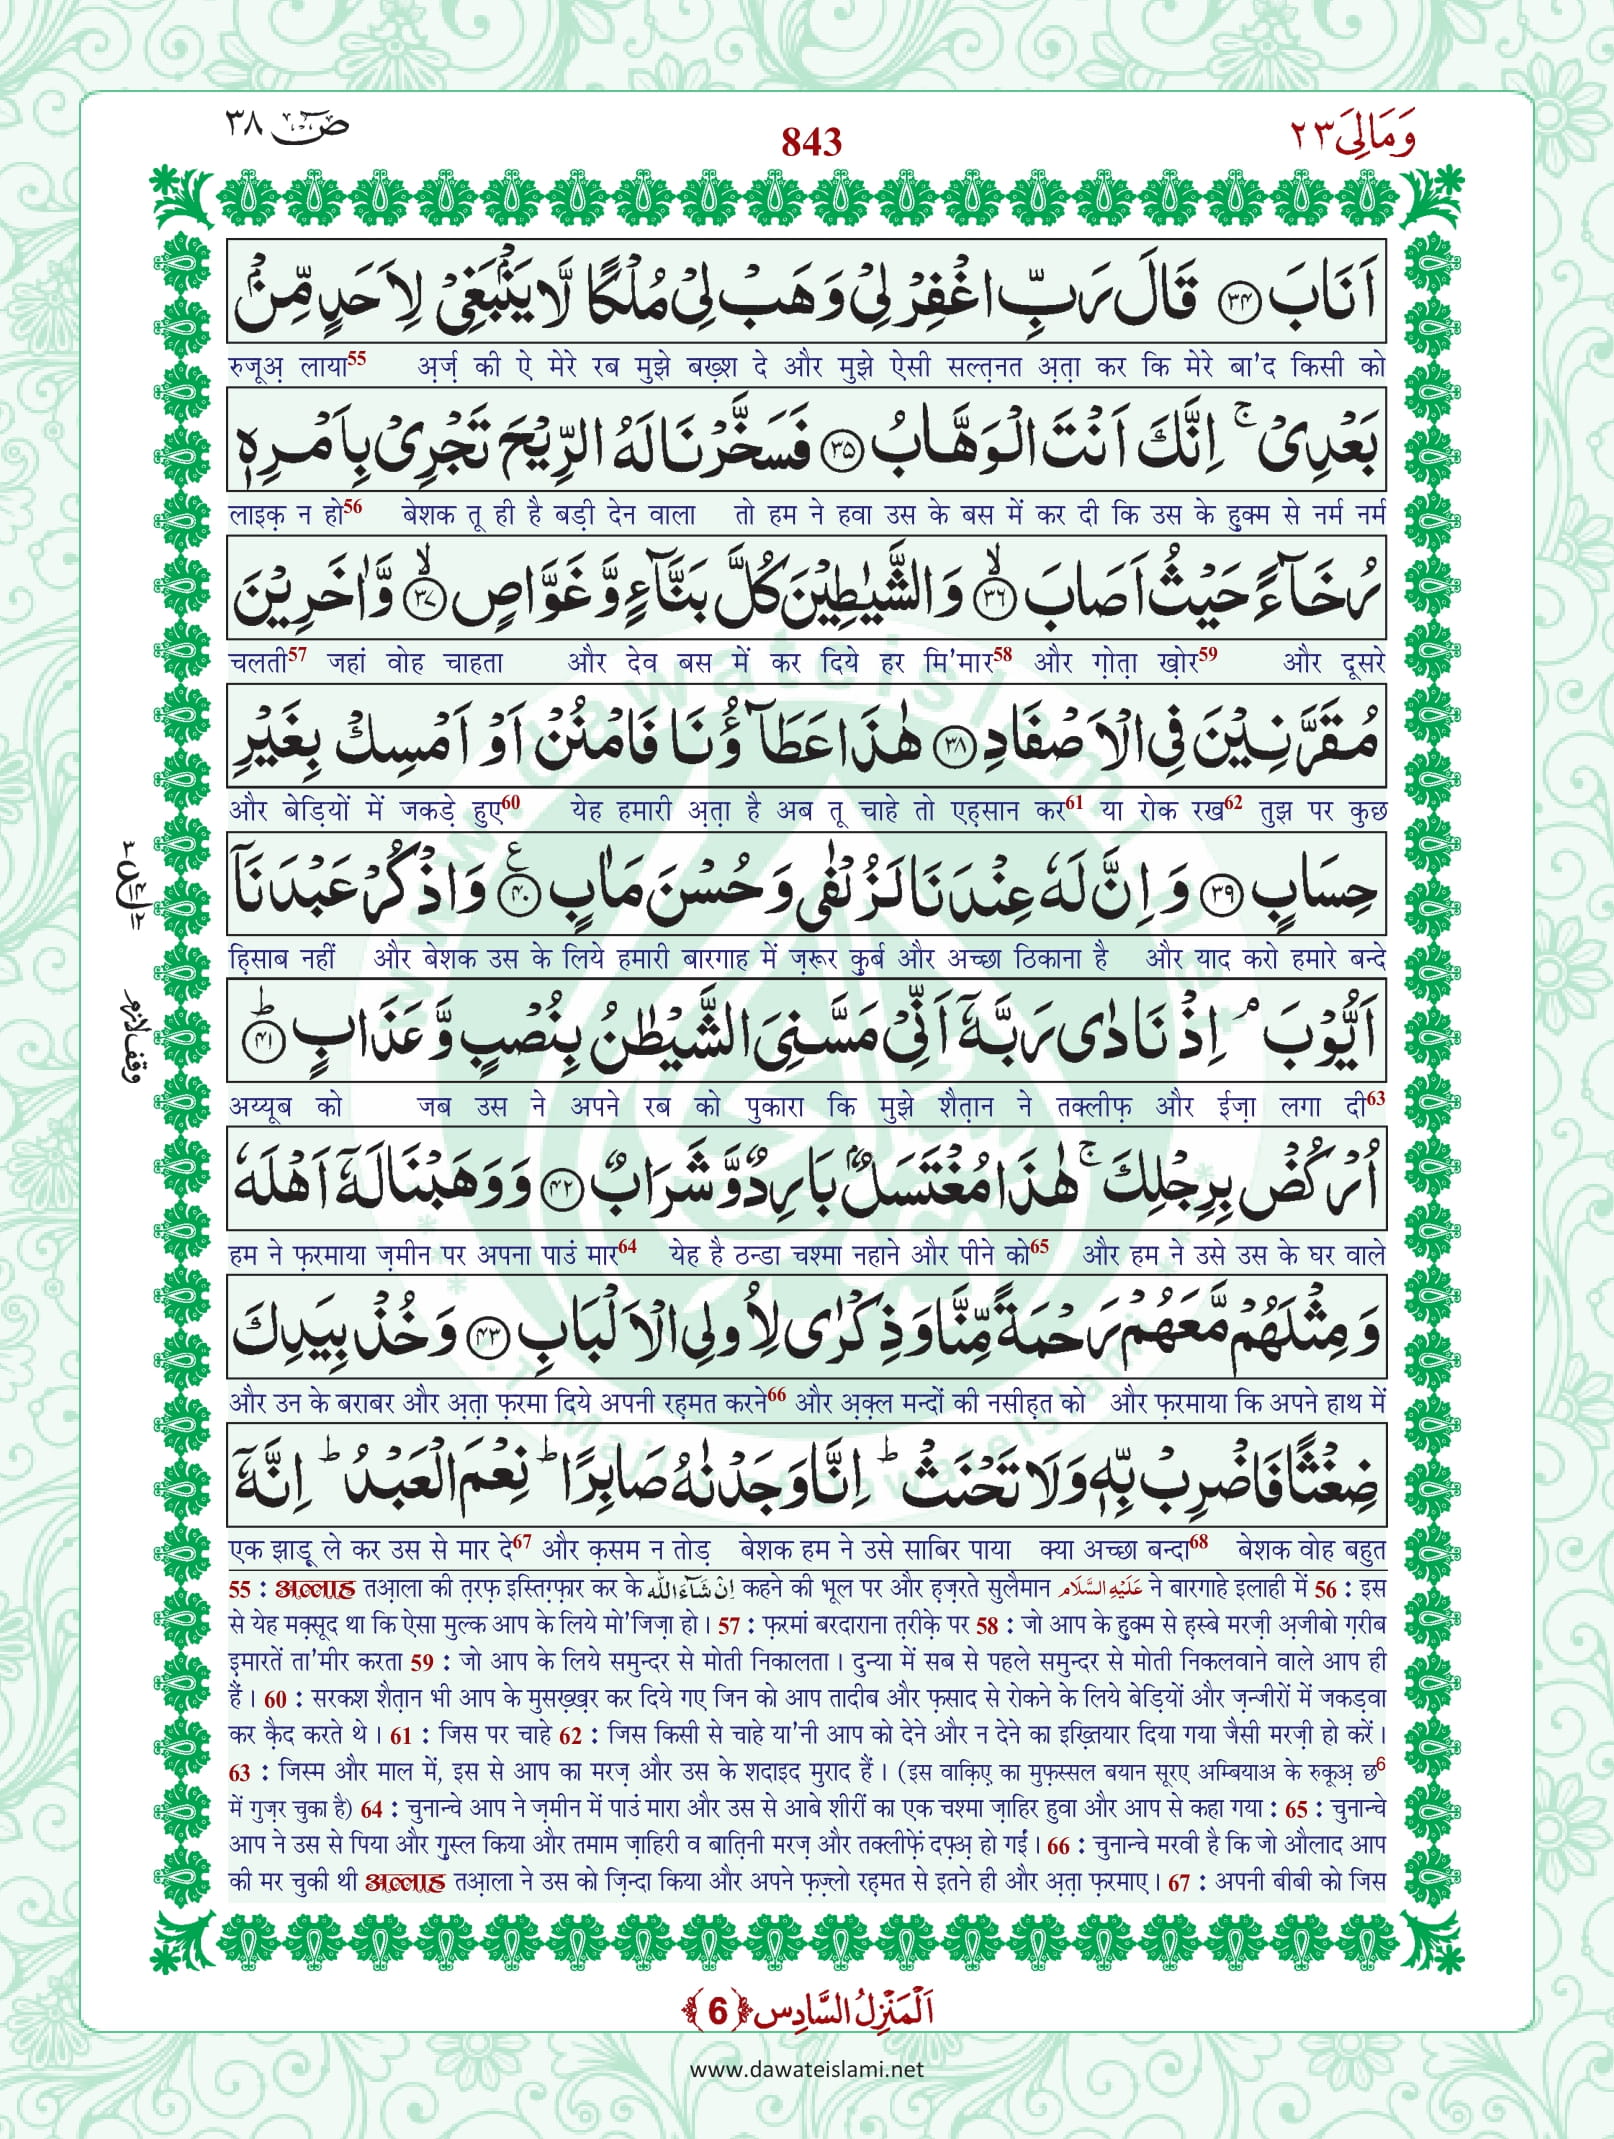 وَمَالِیَ ٢٣
843
صٓ ٣٨
اَنَابَ ﴿۳۴﴾ قَالَ رَبِّ اغْفِرْ لِیْ وَهَبْ لِیْ مُلْكًا لَّا یَنْۢبَغِیْ لِاَحَدٍ مِّنْۢ
रुजूअ़ लाया55 अ़र्ज़ की ऐ मेरे रब मुझे बख़्श दे और मुझे ऐसी सल्त़नत अ़त़ा कर कि मेरे बा'द किसी को
بَعْدِیْ ۚ اِنَّكَ اَنْتَ الْوَهَّابُ ﴿۳۵﴾ فَسَخَّرْنَا لَهُ الرِّیْحَ تَجْرِیْ بِاَمْرِهٖ
लाइक़ न हो56 बेशक तू ही है बड़ी देन वाला तो हम ने हवा उस के बस में कर दी कि उस के हुक्म से नर्म नर्म
رُخَآءً حَیْثُ اَصَابَ ﴿ۙ۳۶﴾ وَالشَّیٰطِیْنَ كُلَّ بَنَّآءٍ وَّغَوَّاصٍ ﴿ۙ۳۷﴾ وَّاٰخَرِیْنَ
चलती57 जहां वोह चाहता और देव बस में कर दिये हर मि'मार58 और ग़ोत़ा ख़ोर59 और दूसरे
مُقَرَّنِیْنَ فِی الْاَصْفَادِ ﴿۳۸﴾ هٰذَا عَطَآؤُنَا فَامْنُنْ اَوْ اَمْسِكْ بِغَیْرِ
और बेड़ियों में जकड़े हुए60 येह हमारी अ़त़ा है अब तू चाहे तो एह़सान कर61 या रोक रख62 तुझ पर कुछ
حِسَابٍ ﴿۳۹﴾ وَاِنَّ لَهٗ عِنْدَنَا لَزُلْفٰی وَحُسْنَ مَاٰبٍ ﴿۴۰﴾ ع وَاذْكُرْ عَبْدَنَاۤ
हि़साब नहीं और बेशक उस के लिये हमारी बारगाह में ज़रूर क़ुर्ब और अच्छा ठिकाना है और याद करो हमारे बन्दे
اَیُّوْبَ ۘ اِذْ نَادٰی رَبَّهٗۤ اَنِّیْ مَسَّنِیَ الشَّیْطٰنُ بِنُصْبٍ وَّعَذَابٍ ﴿ؕ۴۱﴾
وقف لازم
अय्यूब को जब उस ने अपने रब को पुकारा कि मुझे शैत़ान ने तक्लीफ़ और ईज़ा लगा दी63
اُرْكُضْ بِرِجْلِكَ ۚ هٰذَا مُغْتَسَلٌۢ بَارِدٌ وَّشَرَابٌ ﴿۴۲﴾ وَوَهَبْنَا لَهٗۤ اَهْلَهٗ
हम ने फ़रमाया ज़मीन पर अपना पाउं मार64 येह है ठन्डा चश्मा नहाने और पीने को65 और हम ने उसे उस के घर वाले
وَمِثْلَهُمْ مَّعَهُمْ رَحْمَةً مِّنَّا وَذِكْرٰی لِاُولِی الْاَلْبَابِ ﴿۴۳﴾ وَخُذْ بِیَدِكَ
और उन के बराबर और अ़त़ा फ़रमा दिये अपनी रह़मत करने66 और अ़क़्ल मन्दों की नसीह़त को और फ़रमाया कि अपने हाथ में
ضِغْثًا فَاضْرِبْ بِّهٖ وَلَا تَحْنَثْ ؕ اِنَّا وَجَدْنٰهُ صَابِرًا ؕ نِعْمَ الْعَبْدُ ؕ اِنَّهٗۤ
एक झाड़ू ले कर उस से मार दे67 और क़सम न तोड़ बेशक हम ने उसे साबिर पाया क्या अच्छा बन्दा68 बेशक वोह बहुत
55 : अल्लाह तआ़ला की त़रफ़ इस्तिग़्फ़ार कर के اِنْ شَآءَ اللّٰه कहने की भूल पर और ह़ज़रते सुलैमान عَلَیْهِ السَّلَام ने बारगाहे इलाही में 56 : इस
से येह मक़्सूद था कि ऐसा मुल्क आप के लिये मो'जिज़ा हो। 57 : फ़रमां बरदाराना त़रीक़े पर 58 : जो आप के हुक्म से ह़स्बे मरज़ी अ़जीबो ग़रीब
इमारतें ता'मीर करता 59 : जो आप के लिये समुन्दर से मोती निकालता। दुन्या में सब से पहले समुन्दर से मोती निकलवाने वाले आप ही
हैं। 60 : सरकश शैत़ान भी आप के मुसख़्ख़र कर दिये गए जिन को आप तादीब और फ़साद से रोकने के लिये बेड़ियों और ज़न्जीरों में जकड़वा
कर क़ैद करते थे। 61 : जिस पर चाहे 62 : जिस किसी से चाहे या'नी आप को देने और न देने का इख़्तियार दिया गया जैसी मरज़ी हो करें।
63 : जिस्म और माल में, इस से आप का मरज़ और उस के शदाइद मुराद हैं। (इस वाक़िए का मुफ़स्सल बयान सूरए अम्बियाअ के रुकूअ़ छ6
में गुज़र चुका है) 64 : चुनान्चे आप ने ज़मीन में पाउं मारा और उस से आबे शीरीं का एक चश्मा ज़ाहिर हुवा और आप से कहा गया : 65 : चुनान्चे
आप ने उस से पिया और ग़ुस्ल किया और तमाम ज़ाहिरी व बात़िनी मरज़ और तक्लीफ़ें दफ़्अ़ हो गईं। 66 : चुनान्चे मरवी है कि जो औलाद आप
की मर चुकी थी अल्लाह तआ़ला ने उस को ज़िन्दा किया और अपने फ़ज़्लो रह़मत से इतने ही और अ़त़ा फ़रमाए। 67 : अपनी बीबी को जिस
اَلْمَنْزِلُ السَّادِس ﴿6﴾
www.dawateislami.net